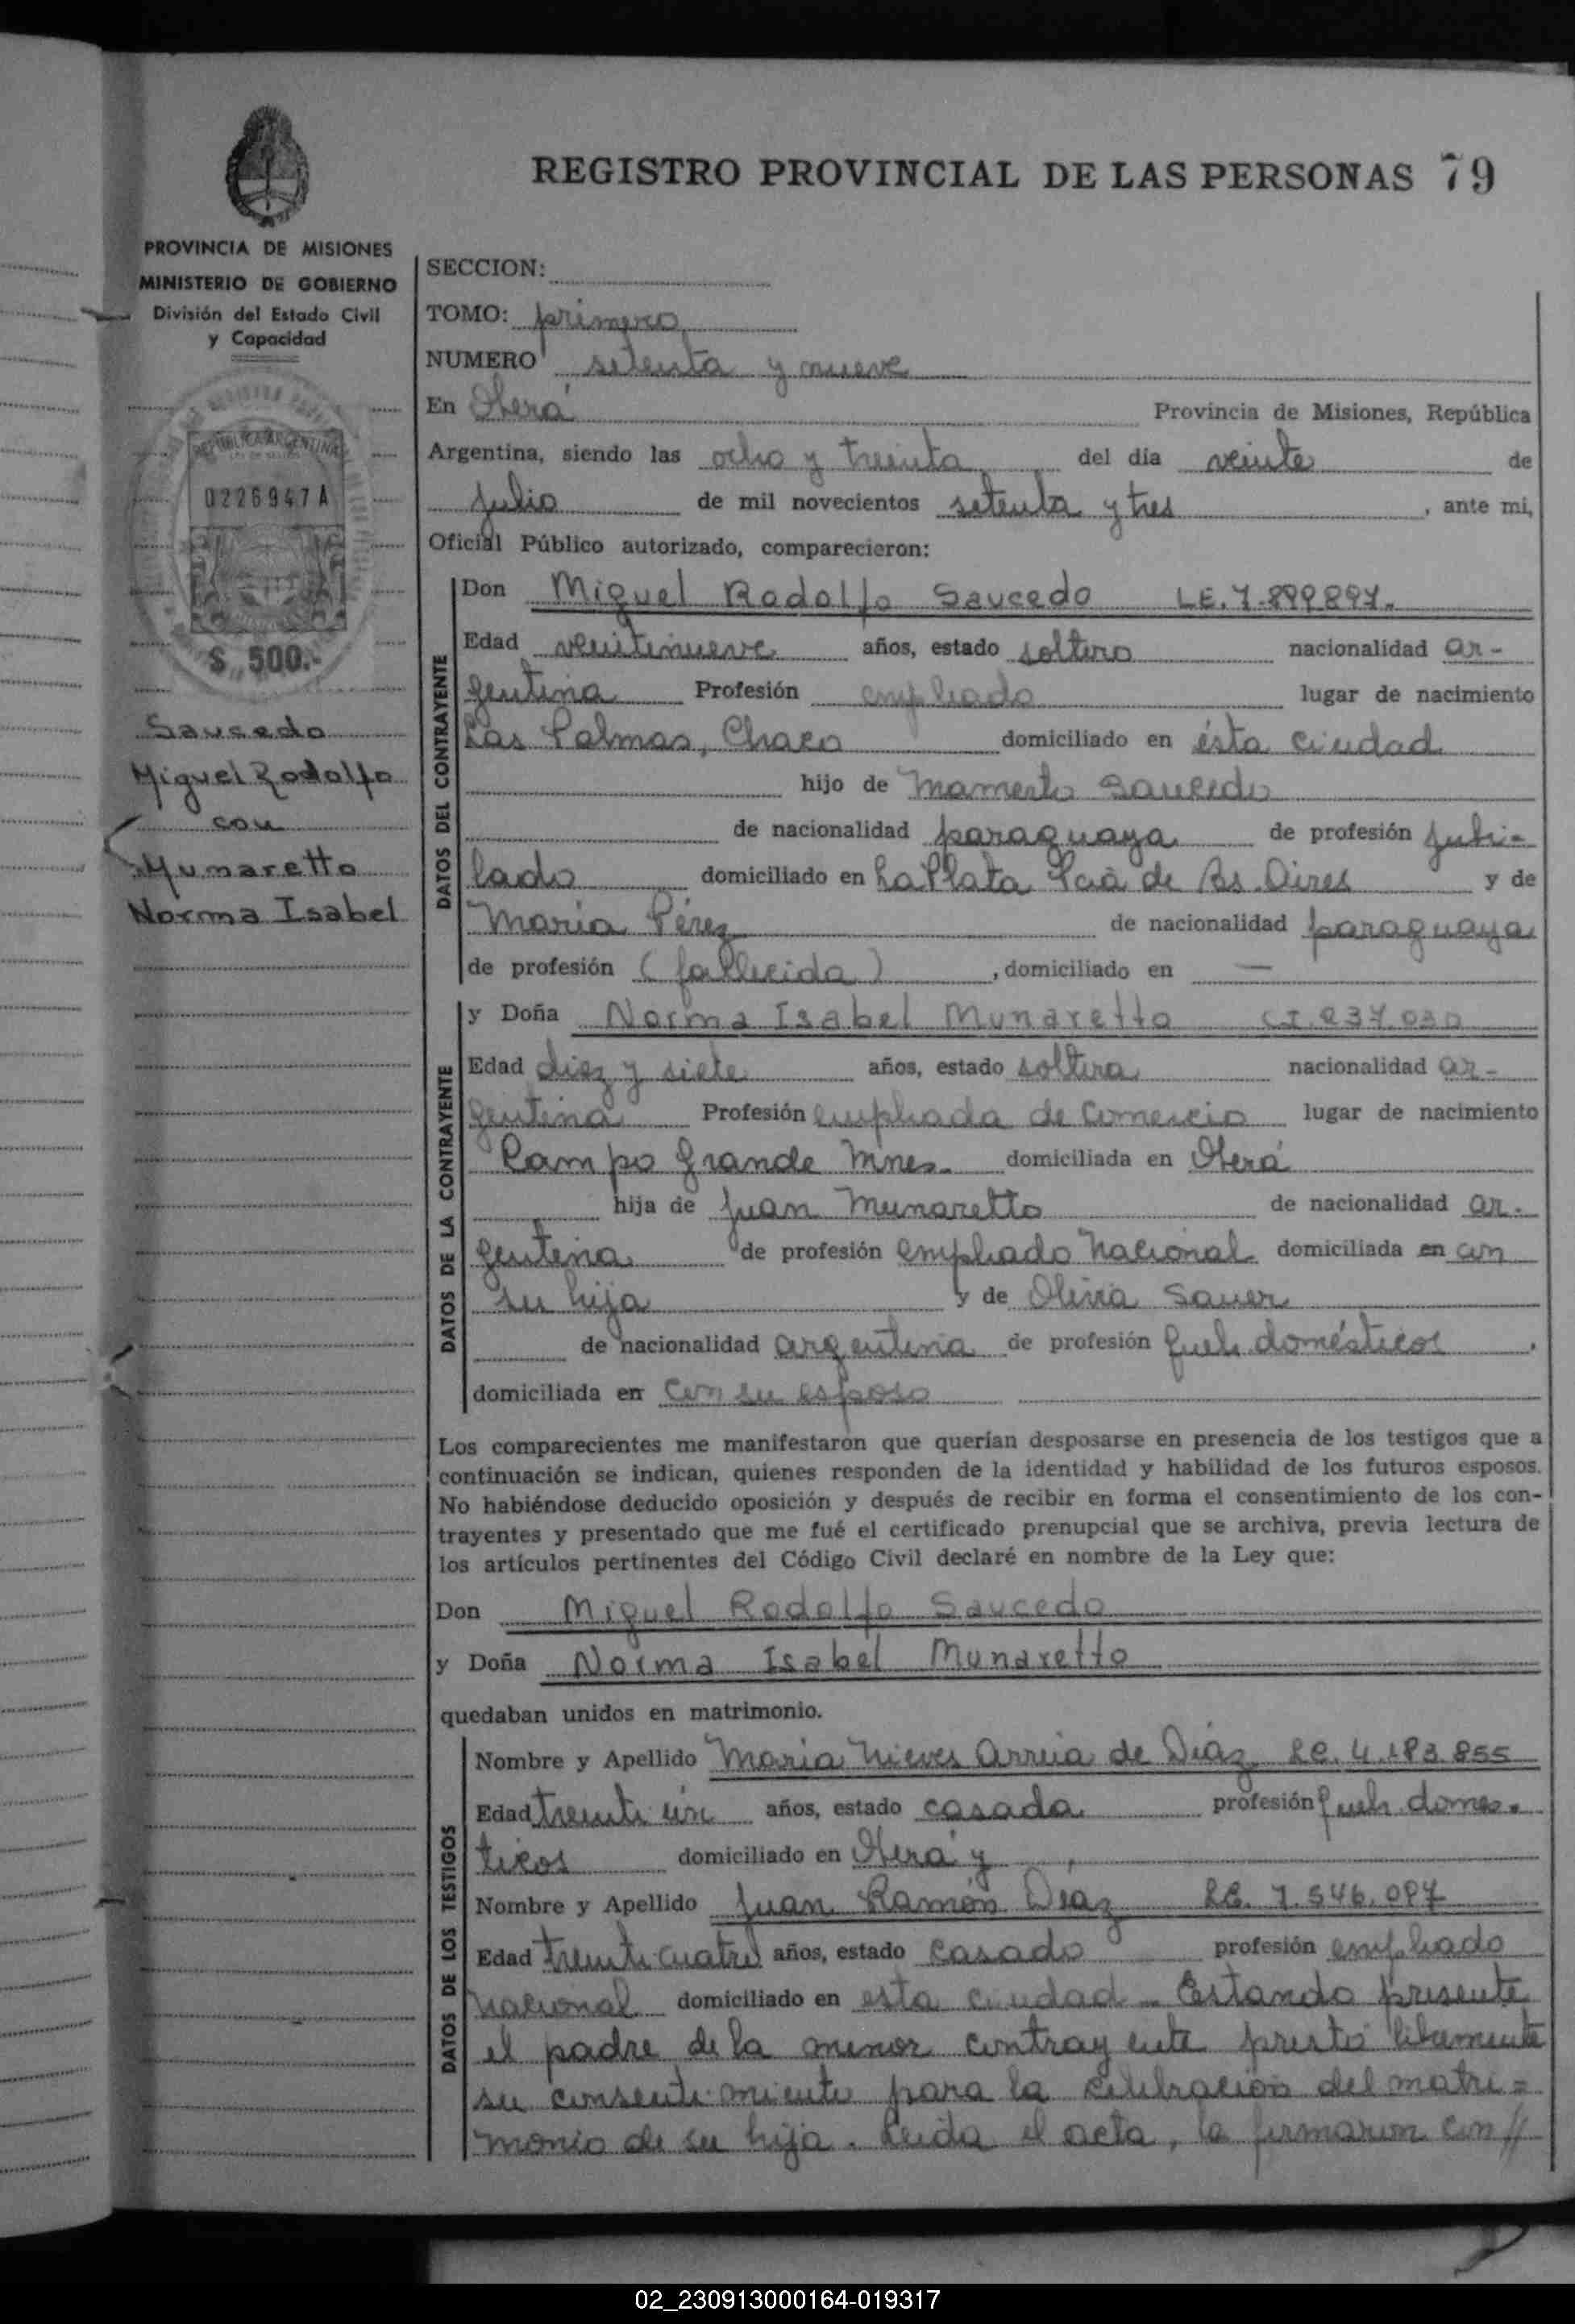 REGISTRO PROVINCIAL DE LAS PERSONAS 79
PROVINCIA DE MISIONES
MINISTERIO DE GOBIERNO
División del Estado Civil
y Capacidad
REPUBLICA ARGENTINA
0226947 A
$ 500.-
Saucedo
Miguel Rodolfo
con
Munaretto
Norma Isabel
SECCION:
TOMO: primero
NUMERO setenta y nueve
En Oberá Provincia de Misiones, República
Argentina, siendo las ocho y treinta del día veinte de
julio de mil novecientos setenta y tres, ante mi,
Oficial Público autorizado, comparecieron:
DATOS DEL CONTRAYENTE
Don Miguel Rodolfo Saucedo LE. 7.899897.
Edad veintinueve años, estado soltero nacionalidad ar-
gentina Profesión empleado lugar de nacimiento
Las Palmas, Chaco domiciliado en ésta ciudad
hijo de Mamerto Saucedo
de nacionalidad paraguaya de profesión jubi-
lado domiciliado en La Plata Pcia de Bs. Aires y de
María Pérez de nacionalidad paraguaya
de profesión (fallecida), domiciliado en —
DATOS DE LA CONTRAYENTE
y Doña Norma Isabel Munaretto CI. 237.030
Edad diez y siete años, estado soltera nacionalidad ar-
gentina Profesión empleada de Comercio lugar de nacimiento
Campo Grande Mnes. domiciliada en Oberá
hija de Juan Munaretto de nacionalidad ar-
gentina de profesión empleado Nacional domiciliada en con
su hija y de Olivia Sauer
de nacionalidad argentina de profesión queh. domésticos,
domiciliada en con su esposo
Los comparecientes me manifestaron que querían desposarse en presencia de los testigos que a
continuación se indican, quienes responden de la identidad y habilidad de los futuros esposos.
No habiéndose deducido oposición y después de recibir en forma el consentimiento de los con-
trayentes y presentado que me fué el certificado prenupcial que se archiva, previa lectura de
los artículos pertinentes del Código Civil declaré en nombre de la Ley que:
Don Miguel Rodolfo Saucedo
y Doña Norma Isabel Munaretto
quedaban unidos en matrimonio.
DATOS DE LOS TESTIGOS
Nombre y Apellido María Nieves Arreia de Díaz LC. 4.183.855
Edad treinti un años, estado casada profesión queh. domes-
ticos domiciliado en Oberá y
Nombre y Apellido Juan Ramón Diaz LE. 7.546.087
Edad treinti cuatro años, estado casado profesión empleado
nacional domiciliado en esta ciudad - Estando presente
el padre de la menor contrayente prestó libremente
su consentimiento para la celebración del matri=
monio de su hija. Leída el acta, la firmaron con //
02_230913000164-019317